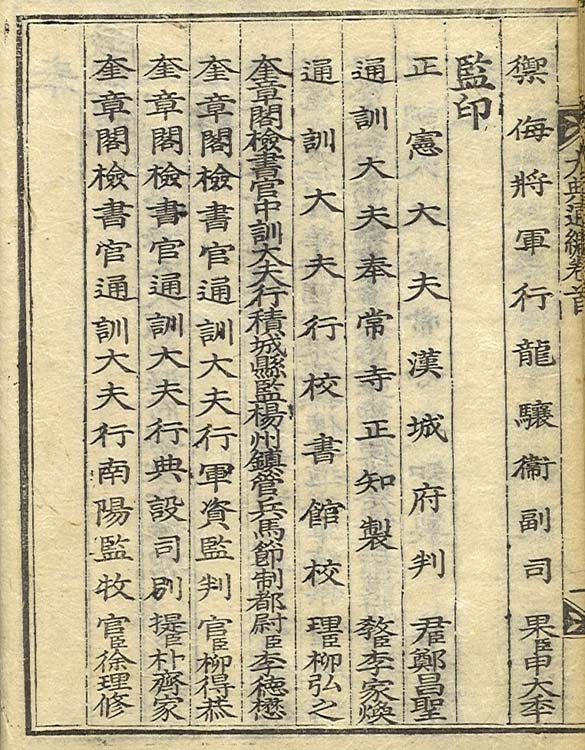 大典通編卷首
禦侮將軍行龍驤衛副司果臣申大
監印
正憲大夫漢城府判尹臣鄭昌聖
通訓大夫奉常寺正知製敎臣李家煥
通訓大夫行校書館校理臣柳弘之
奎章閣檢書官中訓大夫行積城縣監楊州鎭管兵馬節制都尉臣李德懋
奎章閣檢書官通訓大夫行軍資監判官臣柳得恭
奎章閣檢書官通訓大夫行典設司別提臣朴齊家
奎章閣檢書官通訓大夫行南陽監牧官臣徐理修